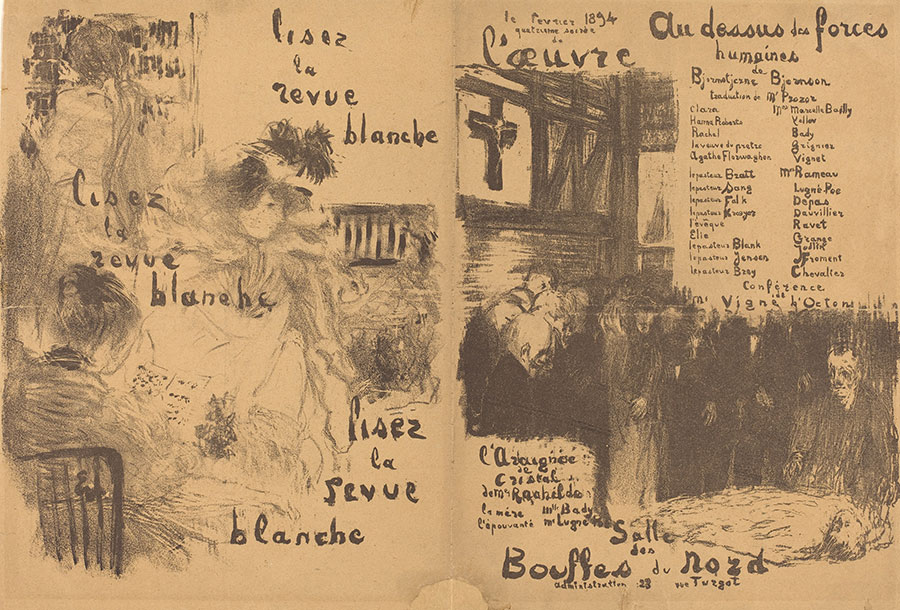 lisez
la
revue
blanche
lisez
la
revue
blanche
lisez
la
revue
blanche
le fevrier 1894
quatrieme soirée
de
l'œuvre
Au dessus des forces
humaines
de
Bjornstjerne Bjornson
traduction de Mr Prozor
Clara Mmes Marcelle Bailly
Hanna Roberts Yellov
Rachel Bady
la veuve du pretre Grignier
Agathe Florvaghen Vignet
le pasteur Bratt Mrs Rameau
le pasteur Sang Lugné-Poe
le pasteur Falk Depas
le pasteur Krøyer Dauvillier
l'évêque Ravet
Elie Grange
le pasteur Blank
le pasteur Jensen Froment
le pasteur Brey Chevalier
Conférence
de
Mr Vigné d'Octon
l'Araignée
de
Cristal
de Me Rachilde
la mère Mlle Bady
l'épouvanté Mr Lugné Poe
Salle
des
Bouffes du Nord
administration : 23 rue Turgot